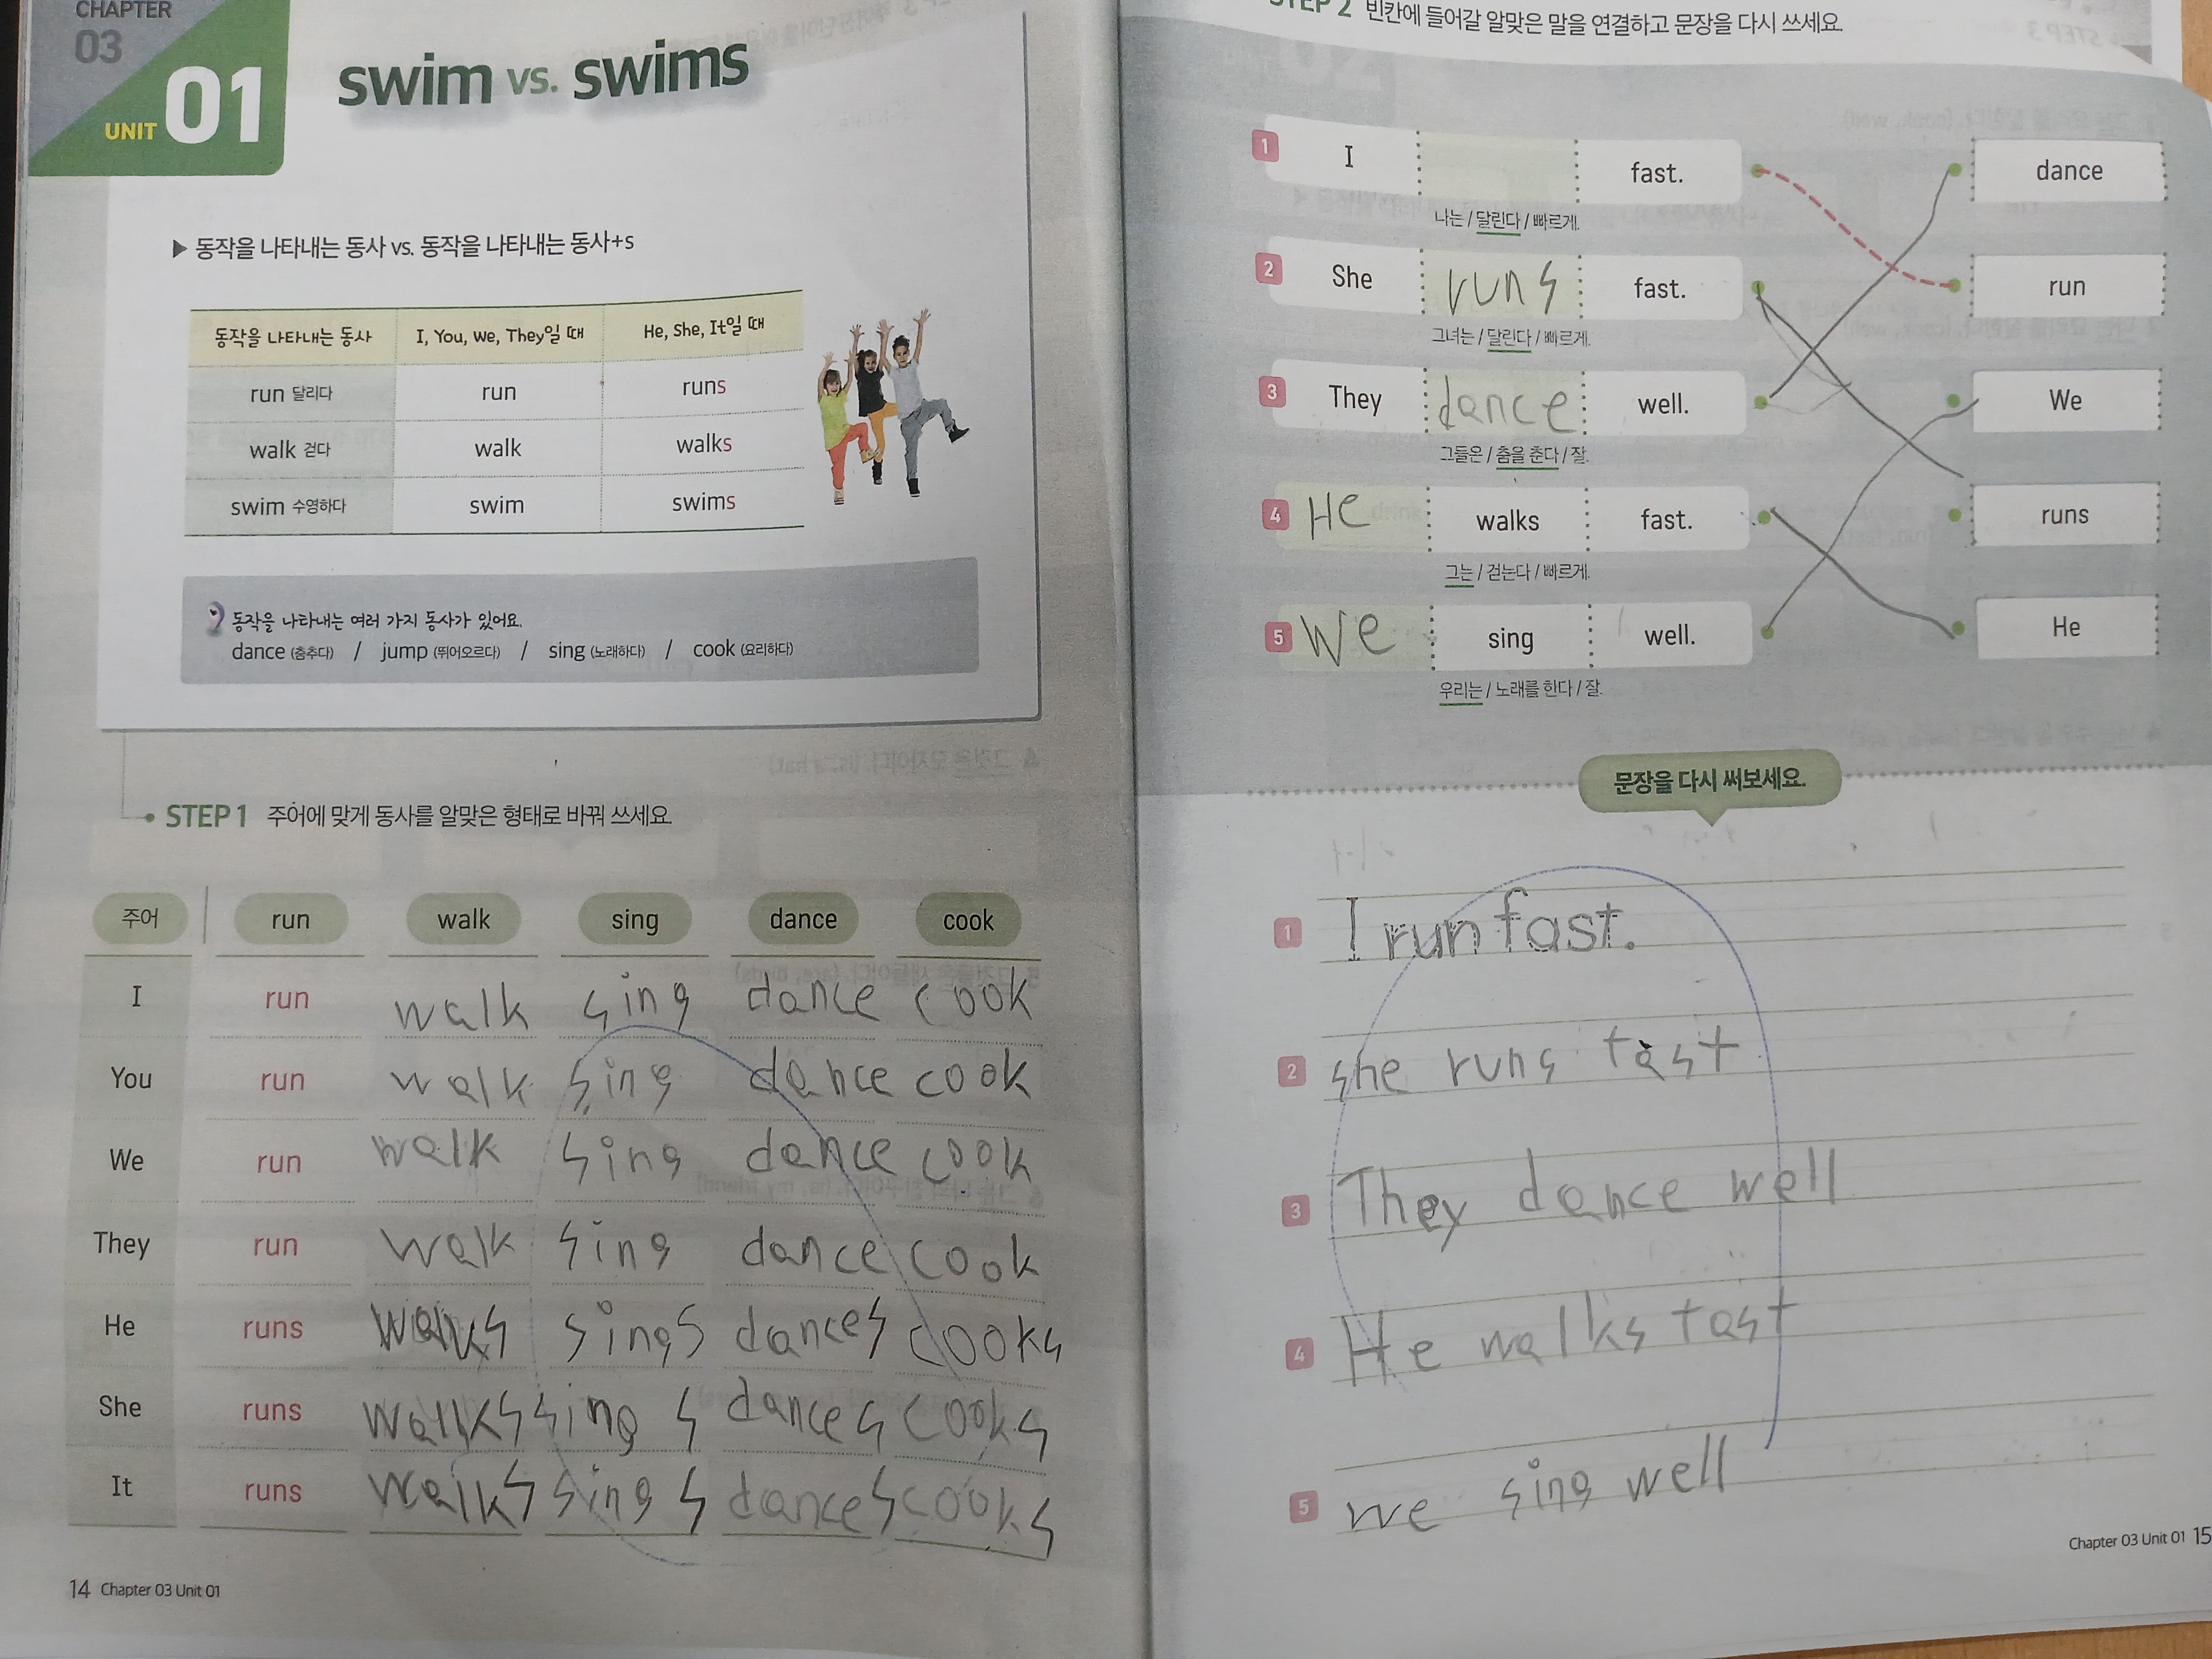 CHAPTER
03
UNIT 01
swim vs. swims
▶ 동작을 나타내는 동사 vs. 동작을 나타내는 동사+s
동작을 나타내는 동사 I, You, We, They일 때 He, She, It일 때
run 달리다 run runs
walk 걷다 walk walks
swim 수영하다 swim swims
동작을 나타내는 여러 가지 동사가 있어요.
dance (춤추다) / jump (뛰어오르다) / sing (노래하다) / cook (요리하다)
STEP 1 주어에 맞게 동사를 알맞은 형태로 바꿔 쓰세요.
주어 run walk sing dance cook
I run walk sing dance cook
You run walk sing dance cook
We run walk sing dance cook
They run walk sing dance cook
He runs walks sings dances cooks
She runs walks sings dances cooks
It runs walks sings dances cooks
14 Chapter 03 Unit 01
STEP 2 빈칸에 들어갈 알맞은 말을 연결하고 문장을 다시 쓰세요.
1 I fast. dance
나는 / 달린다 / 빠르게.
2 She runs fast. run
그녀는 / 달린다 / 빠르게.
3 They dance well. We
그들은 / 춤을 춘다 / 잘.
4 He walks fast. runs
그는 / 걷는다 / 빠르게.
5 We sing well. He
우리는 / 노래를 한다 / 잘.
문장을 다시 써보세요.
1 I run fast.
2 she runs fast
3 They dance well
4 He walks fast
5 we sing well
Chapter 03 Unit 01 15